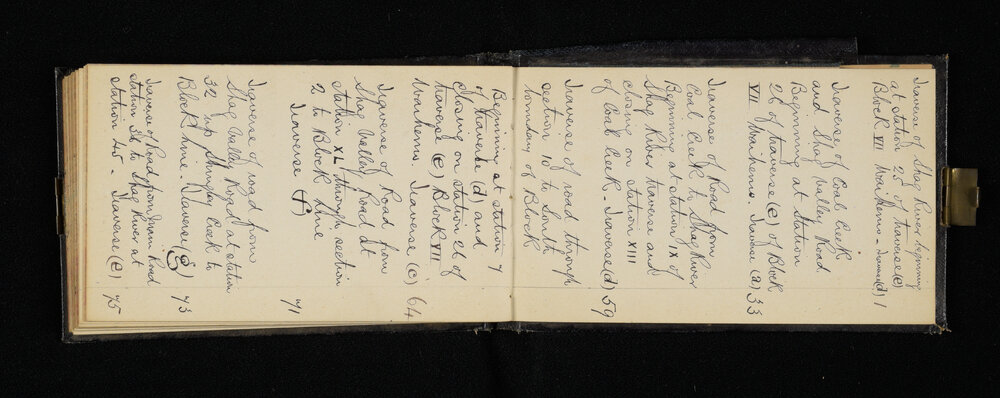 Traverse of Shag River beginning
at station 25 of traverse (e)
Block VII Waihemo - Traverse (d) 1
Traverse of Coal Creek
and Shag Valley Road
Beginning at Station
26 of traverse (e) of Block
VII Waihemo. Traverse (a) 33
Traverse of Road from
Coal Creek to Shag River
Beginning at station IX of
Shag River traverse and
closing on station XIII
of Coal Creek - Traverse (d) 59
Traverse of road through
section 10 to South
boundary of Block
Beginning at station 7
of traverse (d) and
closing on station 21 of
traverse (e) Block VII
Waihemo. Traverse (c) 64
Traverse of Road from
Shag Valley Road at
station XL through section
2 to Block line
Traverse (f) 71
Traverse of road from
Shag Valley Road at station
32 up Creek to
Block line. Traverse (g) 73
Traverse of Road from Main Road
station 36 to Shag River at
station 45 - Traverse (e) 75